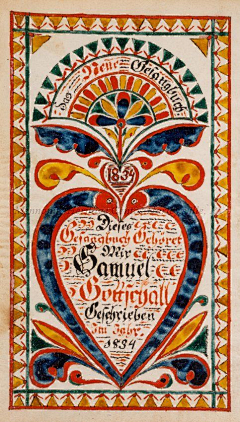 Das Neue Gesangbuch
1834
Dieses
Gesangbuch Gehöret
Mir
Samuel
Gottschall
Geschrieben
Im Jahr
1834